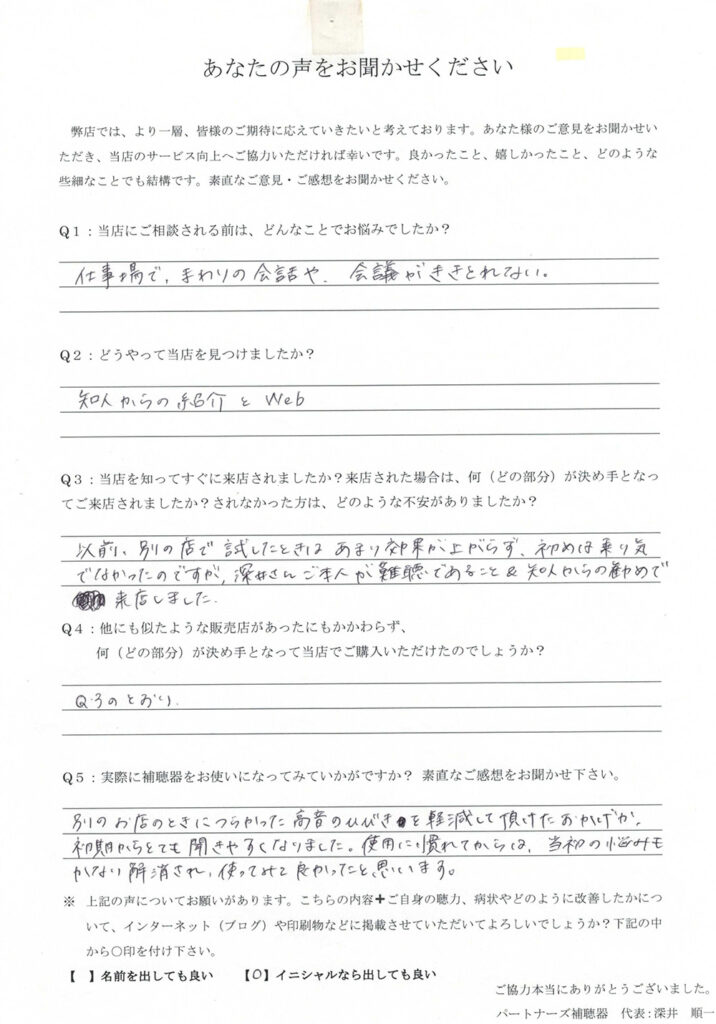 あなたの声をお聞かせください
弊店では、より一層、皆様のご期待に応えていきたいと考えております。あなた様のご意見をお聞かせい
ただき、当店のサービス向上へご協力いただければ幸いです。良かったこと、嬉しかったこと、どのような
些細なことでも結構です。素直なご意見・ご感想をお聞かせください。
Q1：当店にご相談される前は、どんなことでお悩みでしたか？
仕事場で、まわりの会話や、会議がききとれない。
Q2：どうやって当店を見つけましたか？
知人からの紹介と Web
Q3：当店を知ってすぐに来店されましたか？来店された場合は、何（どの部分）が決め手となっ
てご来店されましたか？されなかった方は、どのような不安がありましたか？
以前、別の店で試したときはあまり効果が上がらず、初めは乗り気
でなかったのですが、深井さんご本人が難聴であること & 知人からの勧めで
来店しました。
Q4：他にも似たような販売店があったにもかかわらず、
何（どの部分）が決め手となって当店でご購入いただけたのでしょうか？
Q.3のとおり.
Q5：実際に補聴器をお使いになってみていかがですか？ 素直なご感想をお聞かせ下さい。
別のお店のときにつらかった高音のひびきを軽減して頂けたおかげか、
初期からとても聞きやすくなりました。使用に慣れてからは、当初の悩みも
かなり解消され、使ってみて良かったと思います。
※ 上記の声についてお願いがあります。こちらの内容＋ご自身の聴力、病状やどのように改善したかにつ
いて、インターネット（ブログ）や印刷物などに掲載させていただいてよろしいでしょうか？下記の中
から〇印を付け下さい。
【 】名前を出しても良い 【〇】イニシャルなら出しても良い
ご協力本当にありがとうございました。
パートナーズ補聴器 代表：深井 順一